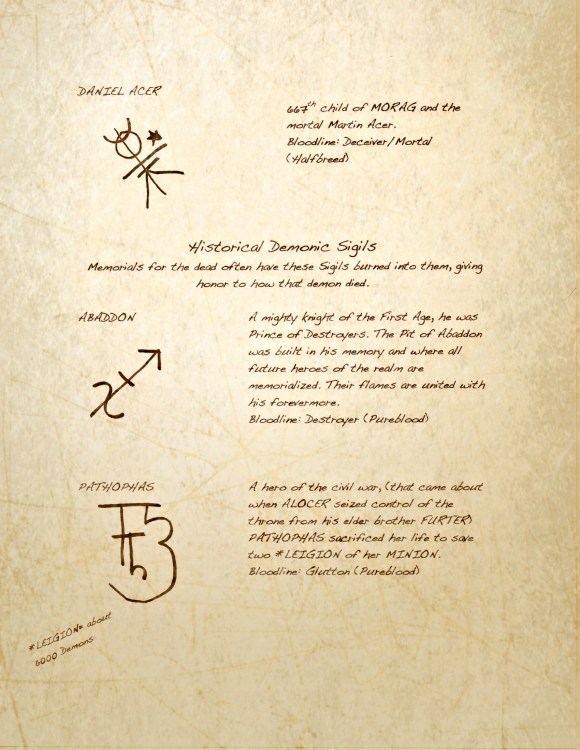 DANIEL ACER
667th child of MORAG and the
mortal Martin Acer.
Bloodline: Deceiver/Mortal
(Halfbreed)
Historical Demonic Sigils
Memorials for the dead often have these Sigils burned into them, giving
honor to how that demon died.
ABADDON
A mighty knight of the First Age, he was
Prince of Destroyers. The Pit of Abaddon
was built in his memory and where all
future heroes of the realm are
memorialized. Their flames are united with
his forevermore.
Bloodline: Destroyer (Pureblood)
PATHOPHAS
A hero of the civil war, (that came about
when ALOCER seized control of the
throne from his elder brother FURTER)
PATHOPHAS sacrificed her life to save
two *LEIGION of her MINION.
Bloodline: Glutton (Pureblood)
*LEIGION= about
6000 Demons